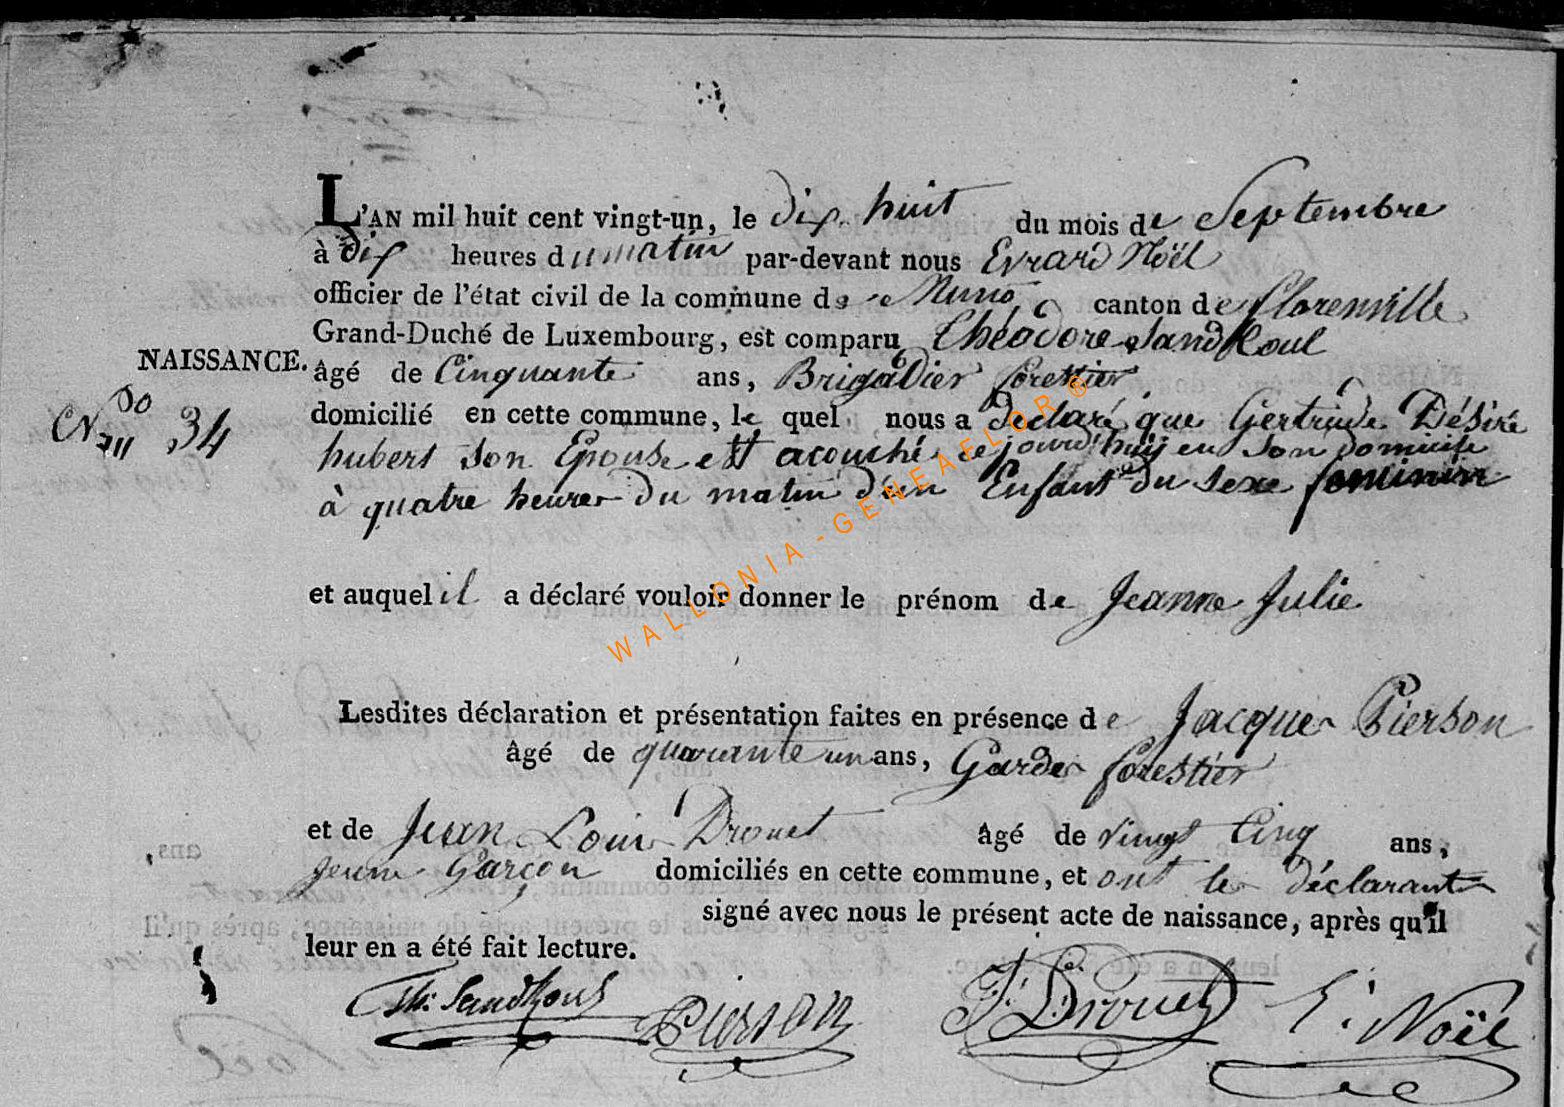 L'AN mil huit cent vingt-un, le dix huit du mois de Septembre
à dix heures du matin par-devant nous Evrard Noël
officier de l'état civil de la commune de Muno canton de florenville
Grand-Duché de Luxembourg, est comparu Théodore Sandkoul
NAISSANCE.
âgé de Cinquante ans, Brigadier forestier
N.° 34
domicilié en cette commune, le quel nous a declaré que Gertrude Désiré
hubert son Epouse est acouché ce jourd'huy en son domicile
à quatre heures du matin d'un Enfant du sexe feminin
et auquel il a déclaré vouloir donner le prénom de Jeanne Julie
WALLONIA - GENEAFLOR ®
Lesdites déclaration et présentation faites en présence de Jacques Pierson
âgé de quarante un ans, Garde forestier
et de Jean Louis Drouet âgé de vingt Cinq ans,
jeune Garçon domiciliés en cette commune, et ont les déclarants
signé avec nous le présent acte de naissance, après qu'il
leur en a été fait lecture.
Th. Sandkoul Pierson J. L. Drouet E. Noël